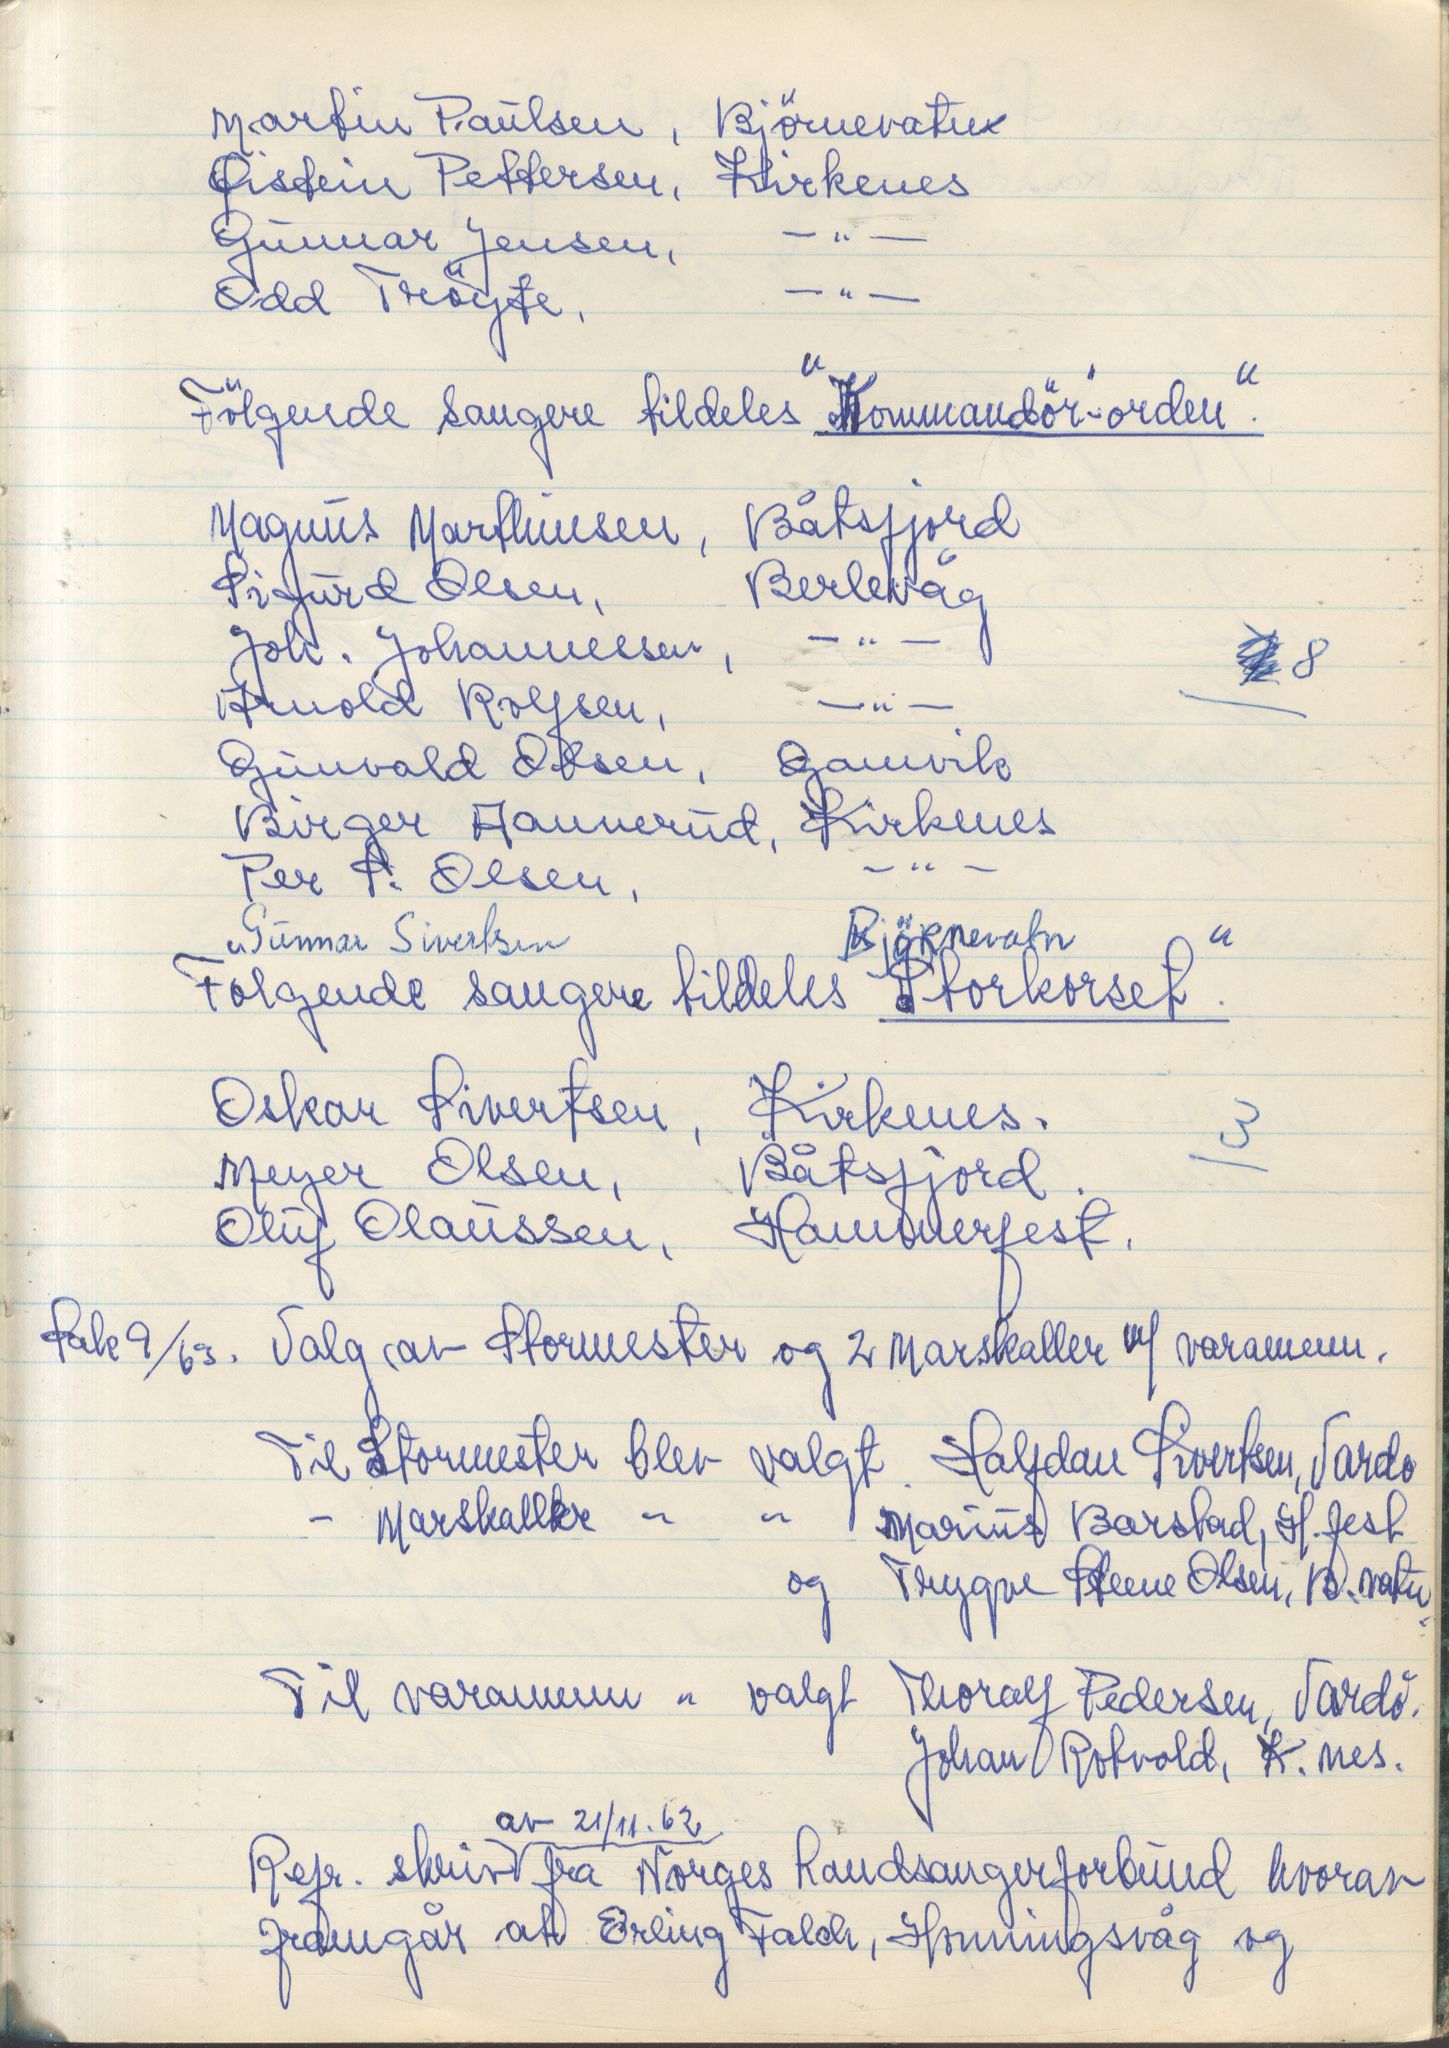 Martin Paulsen, Björnevatn
Øistein Pettersen, Kirkenes
Gunnar Jensen, — " —
Odd Tröyte, — " —
Følgende sangere tildeles "Kommandör"-orden".
Magnus Marthinsen, Båtsfjord
Sigurd Olsen, Berlevåg
Joh. Johannessen, — " —
8
Arnold Rolfsen, — " —
Gunvald Olsen, Gamvik
Birger Hannerud, Kirkenes
Per P. Olsen, — " —
Gunnar Sivertsen Björnevatn
Følgende sangere tildeles "Storkorset".
Oskar Sivertsen, Kirkenes.
3
Meyer Olsen, Båtsfjord.
Oluf Olaussen, Hammerfest.
Sak 9/63. Valg av Stormester og 2 Marskaller m/ varamenn.
Til Stormester blev valgt Halfdan Sivertsen, Vardø
- Marskaller " " Marius Barstad, H.fest
og Trygve Steene Olsen, B.vatn.
Til varamenn " valgt Thoralf Pedersen, Vardö.
Johan Rotvold, K.nes.
av 21/11.62
Refr. skriv fra Norges Landsangerforbund hvorav
framgår at Erling Falch, Honningsvåg og